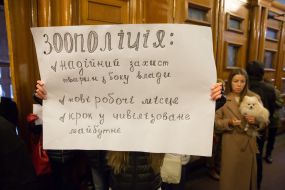 ЗООПОЛІЦІЯ:
✓ НАДІЙНИЙ ЗАХИСТ
ТВАРИН З БОКУ ВЛАДИ
✓ НОВІ РОБОЧІ МІСЦЯ
✓ КРОК У ЦИВІЛІЗОВАНЕ
МАЙБУТНЄ